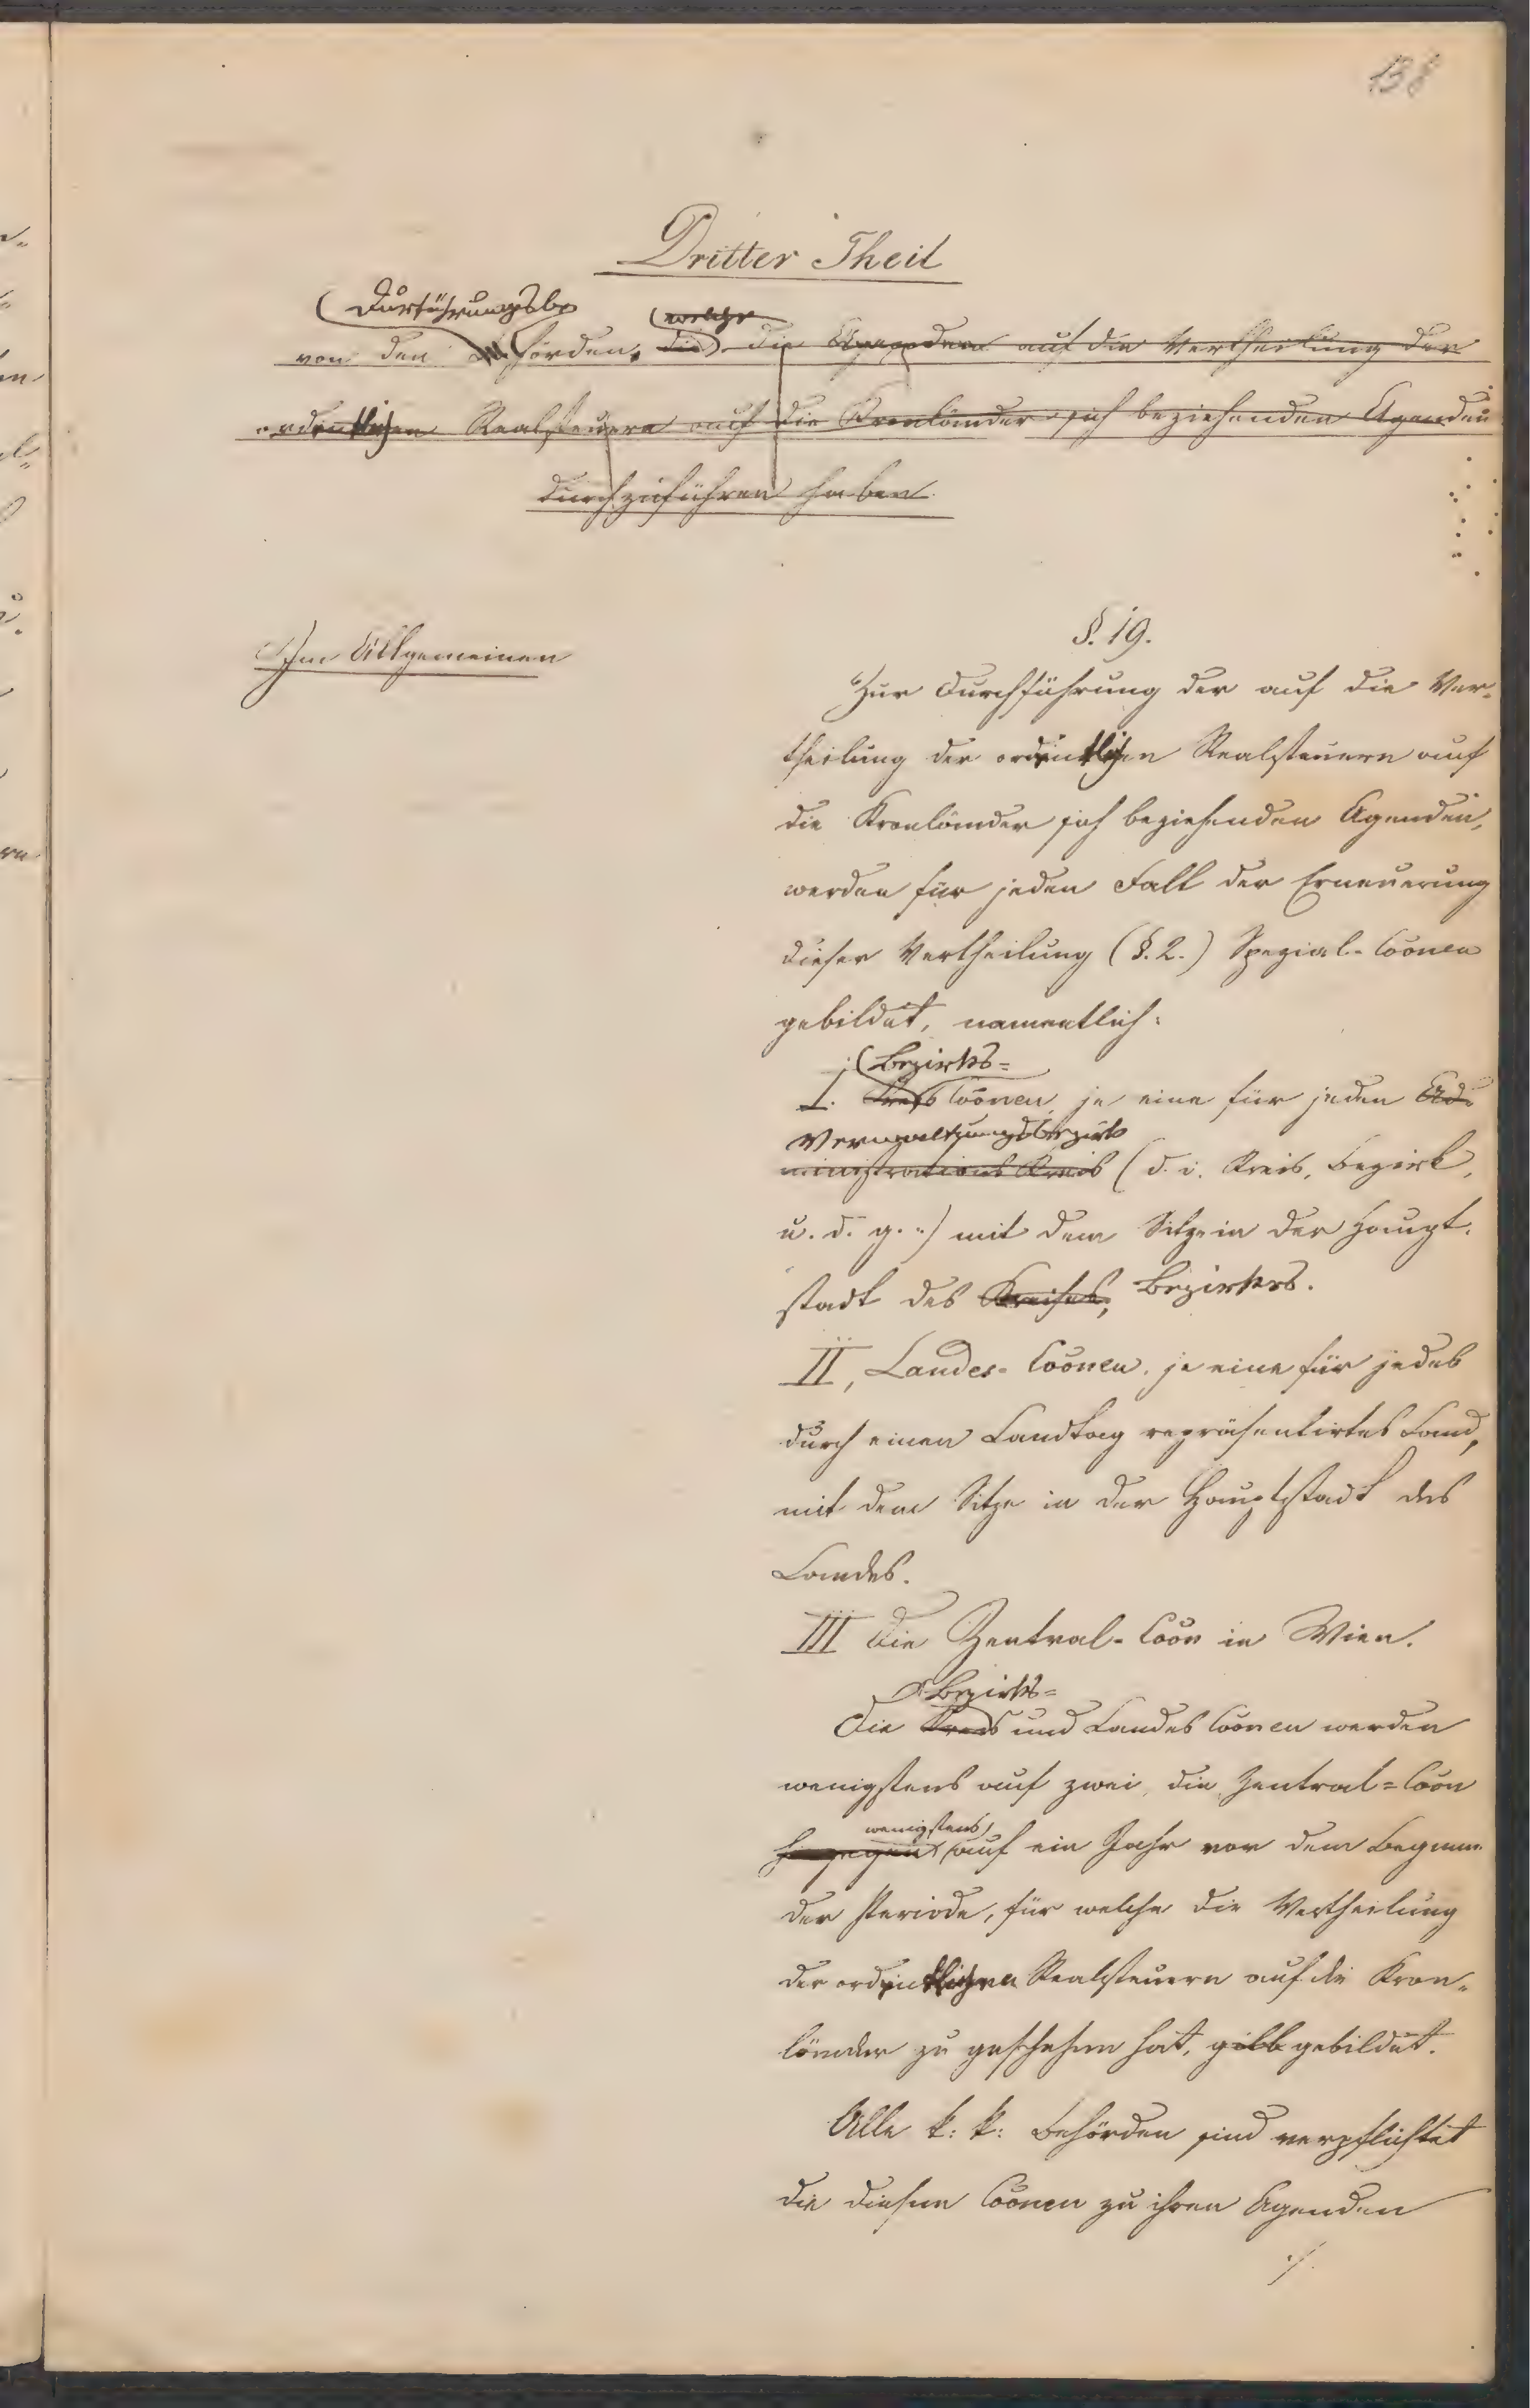 138
Dritter Theil
Durführungsbe
welche
von den Behörden, die die Agenden auf die Vertheilung der
ordentlichen Realsteuern auf die Kronländer sich beziehenden Agenden
durchzuführen haben.
Im Allgemeinen
§. 19.
Zur Durchführung der auf die Ver-
theilung der ordentlichen Realsteuern auf
die Kronländer sich beziehenden Agenden,
werden für jeden Fall der Erneuerung
dieser Vertheilung (§. 2.) Spezial-Coonen
gebildet, namentlich:
Bezirks=
I. Kreis Coonen, je eine für jeden Ad-
Verwaltungsbezirk
ministrations Kreis (d. i. Kreis, Bezirk,
u. d. g.) mit dem Sitze in der Haupt-
stadt des Kreises, Bezirkes.
II, Landes-Coonen, je eine für jedes
durch einen Landtag repräsentirtes Land,
mit dem Sitze in der Hauptstadt des
Landes.
III Die Zentral-Coon in Wien.
Bezirks=
Die Kreis und Landes Coonen werden
wenigstens auf zwei, die Zentral=Coon
wenigstens
hingegen auf ein Jahr vor dem Beginn
der Periode, für welche die Vertheilung
der ordentlichen Realsteuern auf die Kron-
länder zu geschehen hat, gebildet.
Alle k: k: Behörden sind verpflichtet
die diesen Coonen zu ihren Agenden
./.